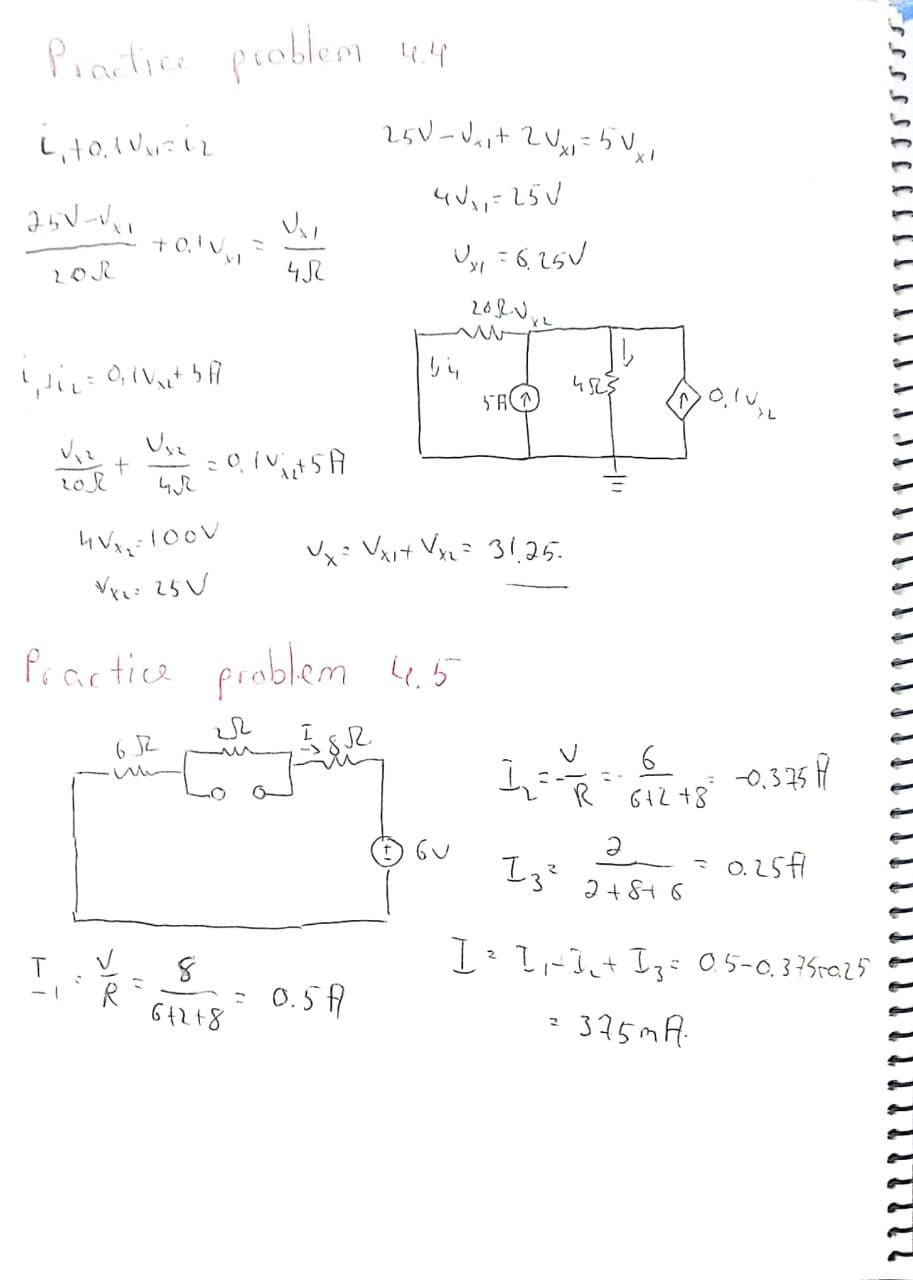 Practice problem 4.4
i₁ + 0.1Vx1 = i2
25V - Vx1 + 2Vx1 = 5Vx1
4Vx1 = 25V
Vx1 = 6.25V
(25V - Vx1)/20Ω + 0.1Vx1 = Vx1/4Ω
20Ω Vx2
i₁
5A
4Ω
0.1Vx2
i2 = 0.1Vx2 + 5A
Vx2/20Ω + Vx2/4Ω = 0.1Vx2 + 5A
4Vx2 = 100V
Vx2 = 25V
Vx = Vx1 + Vx2 = 31.25.
Practice problem 4.5
6Ω
2Ω
I
8Ω
6V
I2 = -V/R = - 6/(6+2+8) = -0.375A
I3 = 2/(2+8+6) = 0.25A
I1 = V/R = 8/(6+2+8) = 0.5A
I = I1 - I2 + I3 = 0.5 - 0.375 + 0.25
= 375mA.